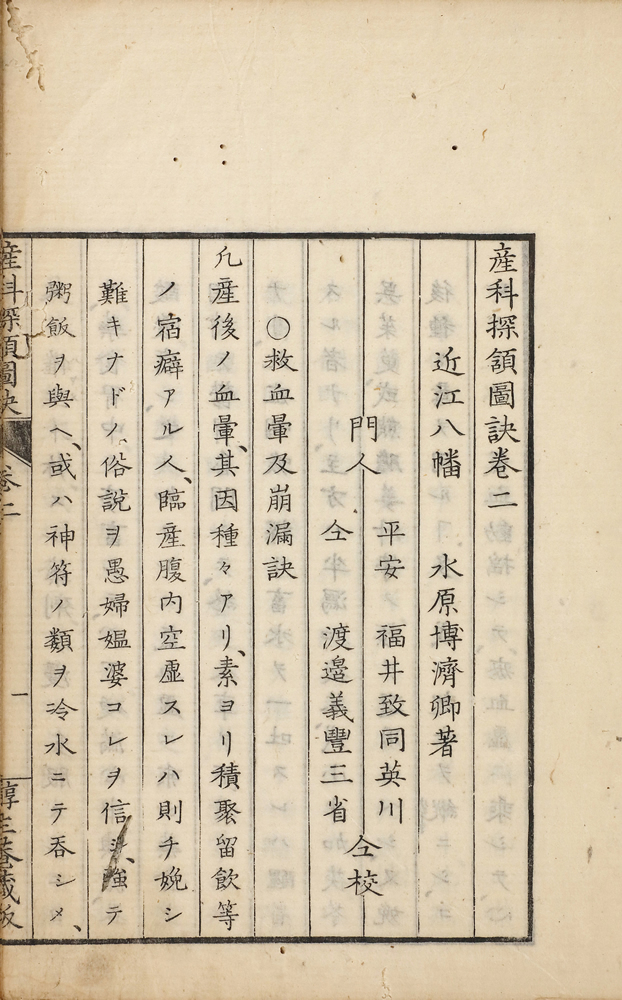 産科探頷圖訣卷二
近江八幡 水原博濟卿著
門人 平安 福井致同英川
仝 渡邉義豐三省 仝校
○救血暈及崩漏訣
凢産後ノ血暈、其因種々アリ、素ヨリ積聚留飲等
ノ宿癖アル人、臨産腹内空虚スレハ則チ娩シ
難キナドノ、俗説ヲ愚婦媼婆コレヲ信シ、強テ
粥飯ヲ與ヘ、或ハ神符ノ類ヲ冷水ニテ呑シメ、
産科探頷圖訣 卷二 一